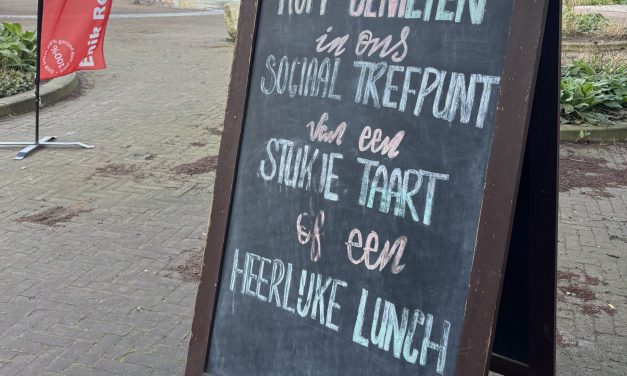 KOM GENIETEN
in ons
SOCIAAL TREFPUNT
van een
STUKJE TAART
of een
HEERLIJKE LUNCH
Enik Re
100%